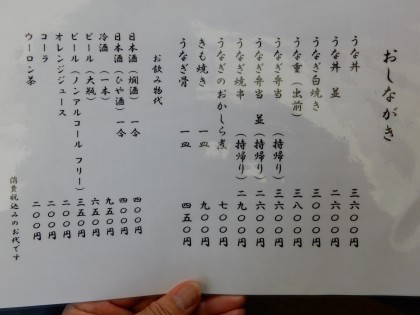 おしながき
うな丼 三六〇〇円
うな丼 並 二六〇〇円
うなぎ白焼き 三〇〇〇円
うな重(出前) 三八〇〇円
うなぎ弁当 (持帰り) 三六〇〇円
うなぎ弁当 並 (持帰り) 二六〇〇円
うなぎ焼串 (持帰り) 二九〇〇円
うなぎのおかしら煮 七〇〇円
きも焼き 一皿 九〇〇円
うなぎ骨 一皿 四五〇円
お飲み物代
日本酒(燗酒) 一合 四〇〇円
日本酒(ひや酒) 一合 四〇〇円
冷酒(一本) 九五〇円
ビール(大瓶) 六五〇円
ビール(ノンアルコール フリー) 三五〇円
オレンジジュース 二〇〇円
コーラ 二〇〇円
ウーロン茶 二〇〇円
消費税込みのお代です